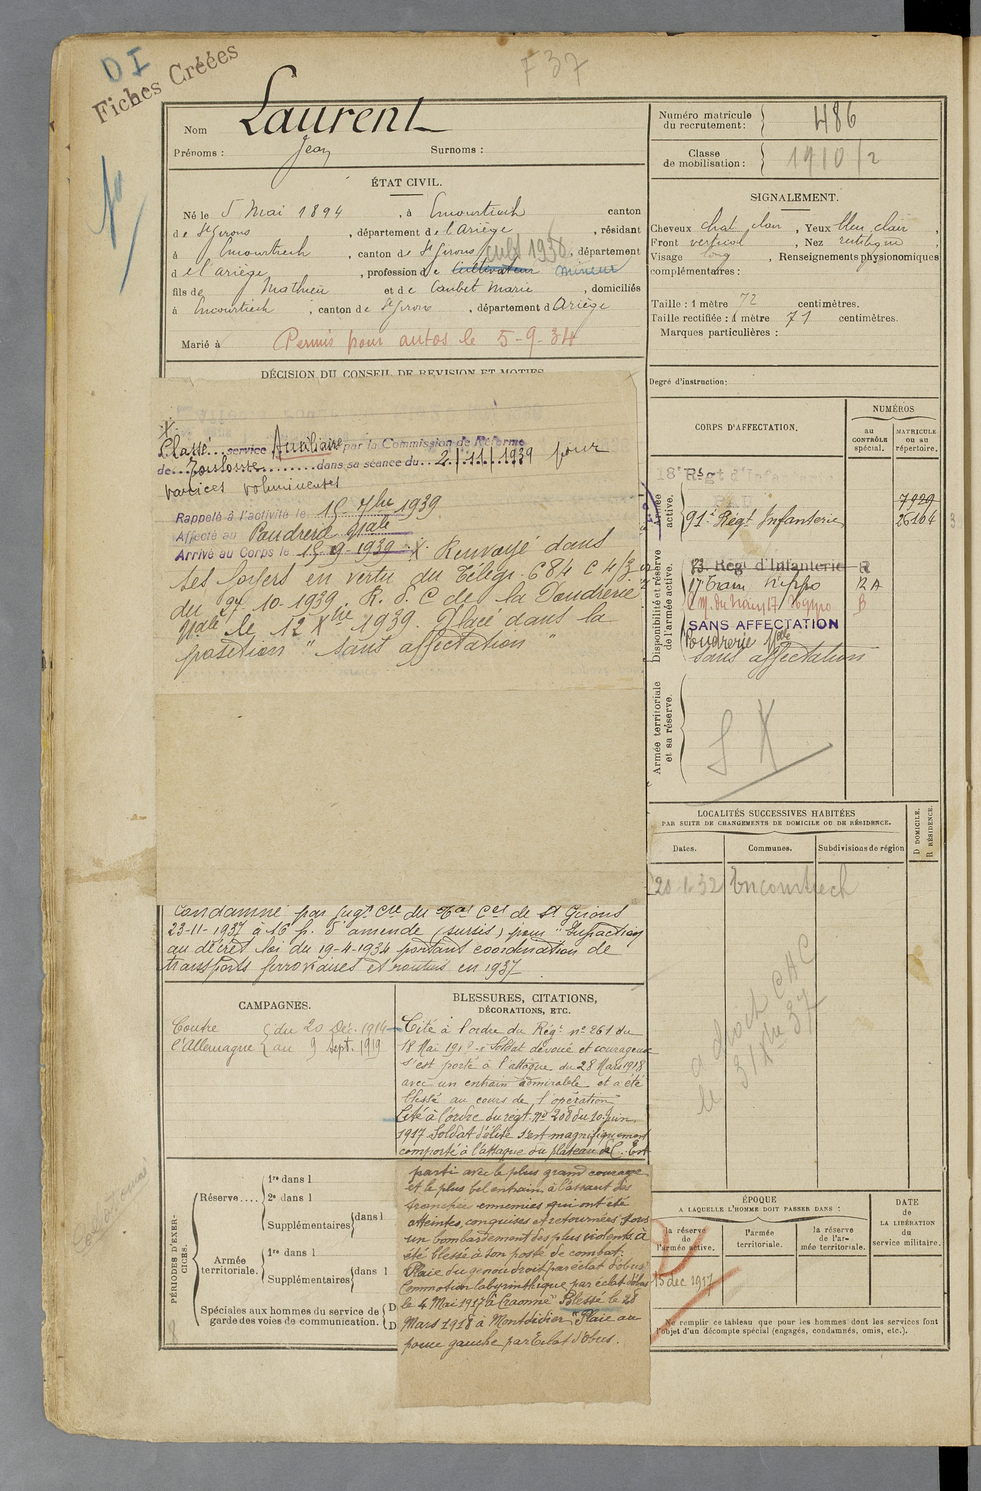 D I
Fiches Créées
F 37
Nom Laurent
Prénoms : Jean Surnoms :
Numéro matricule du recrutement : 486
Classe de mobilisation : 1910/2
ÉTAT CIVIL.
Né le 5 Mai 1894, à Encourtiech canton
de St Girons, département de l'Ariège, résidant
à Encourtiech, canton de St Girons cult 1930, département
de l'Ariège, profession de Cultivateur mineur
fils de Mathieu et de Caubet Marie, domiciliés
à Encourtiech, canton de St Girons, département d Ariège
Marié à Permis pour autos le 5-9-34
SIGNALEMENT.
Cheveux chat. clair, Yeux bleu clair,
Front vertical, Nez rectiligne,
Visage long, Renseignements physionomiques
complémentaires :
Taille : 1 mètre 72 centimètres.
Taille rectifiée : 1 mètre 71 centimètres.
Marques particulières :
Degré d'instruction :
DÉCISION DU CONSEIL DE REVISION ET MOTIFS
Classé service Auxiliaire par la Commission de Réforme
de Toulouse dans sa séance du 2/11/1939 pour
varices volumineuses
Rappelé à l'activité le 15 7bre 1939
Affecté au Poudrerie Nale
Arrivé au Corps le 15-9-1939 X Renvoyé dans
ses foyers en vertu du Télégr. 684 C 4/3
du 27 10-1939. R. d. C de la Poudrerie
Nale le 12 Xbre 1939. Placé dans la
position "sans affectation"
CORPS D'AFFECTATION.
NUMÉROS
AU CONTRÔLE spécial.
MATRICULE ou au répertoire.
Armée active.
18e Régt d'Infanterie
PAU
7929
91e Régt Infanterie 26164
Disponibilité et réserve de l'armée active.
Rég. d'Infanterie R
17e Train hippo R A
B
SANS AFFECTATION
Poudrerie Nale
sans affectation
Armée territoriale et sa réserve.
S X
LOCALITÉS SUCCESSIVES HABITÉES
PAR SUITE DE CHANGEMENTS DE DOMICILE OU DE RÉSIDENCE.
Dates. Communes. Subdivisions de région
D DOMICILE.
R RÉSIDENCE.
20.1.32 Encourtiech
a droit CAC
le 31 Xbre 37
Condamné par jugt Cre du Tal Cel de St Girons
23-11-1937 à 16 f. d'amende (sursis) pour "Infraction
au décret loi du 19-4-1934 portant coordination de
transports ferroviaires et routiers en 1937
CAMPAGNES.
Contre l'Allemagne du 20 Déc. 1914
au 9 Sept. 1919
BLESSURES, CITATIONS,
DÉCORATIONS, ETC.
Cité à l'ordre du Régt no 261 du
18 Mai 1918 "Soldat dévoué et courageux
s'est porté à l'attaque du 28 Mars 1918
avec un entrain admirable et a été
blessé au cours de l'opération"
Cité à l'ordre du régt. No 208 du 10 juin
1917 Soldat d'élite s'est magnifiquement
comporté à l'attaque du plateau de C. Est
parti avec le plus grand courage
et le plus bel entrain à l'assaut des
tranchée ennemies qui ont été
atteintes, conquises et retournées. Sous
un bombardement des plus violents à
été blessé à son poste de combat :
Plaie du genou droit par éclat d'obus
Commotion labyrinthique par éclat d'obus
le 4 Mai 1917 à Craonne" Blessé le 28
Mars 1918 à Montdidier "Plaie au
pouce gauche par Eclat d'obus.
PÉRIODES D'EXERCICES.
Réserve.... 1re dans l
2e dans l
Supplémentaires dans l
Armée territoriale. 1re dans l
Supplémentaires dans l
Spéciales aux hommes du service de D.
garde des voies de communication. D.
ÉPOQUE
A LAQUELLE L'HOMME DOIT PASSER DANS :
la réserve de l'armée active.
l'armée territoriale.
la réserve de l'armée territoriale.
DATE de LA LIBÉRATION du service militaire.
15 dec 1917
Ne remplir ce tableau que pour les hommes dont les services font
l'objet d'un décompte spécial (engagés, condamnés, omis, etc.).